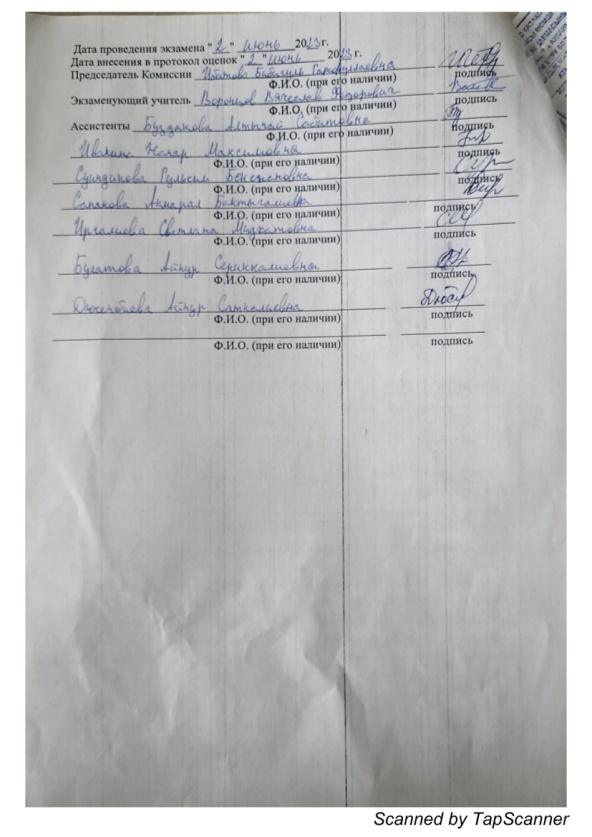 Дата проведения экзамена "2" июнь 2023 г.
Дата внесения в протокол оценок "2" июнь 2023 г.
Председатель Комиссии
Ф.И.О. (при его наличии) подпись
Экзаменующий учитель Воронцов Вячеслав Федорович
Ф.И.О. (при его наличии) подпись
Ассистенты Бузданова Алтынай Сабитовна
Ф.И.О. (при его наличии) подпись
Максимовна
Ф.И.О. (при его наличии) подпись
Сундикова Гульсим
Ф.И.О. (при его наличии) подпись
Сапакова Акмарал Бактыгалиевна
Ф.И.О. (при его наличии) подпись
Иргалиева Светлана Мидхатовна
Ф.И.О. (при его наличии) подпись
Булатова Айнур Серинкалиевна
Ф.И.О. (при его наличии) подпись
Дюсенбиева Айнур Саткалиевна Дюсе
Ф.И.О. (при его наличии) подпись
Ф.И.О. (при его наличии) подпись
Scanned by TapScanner